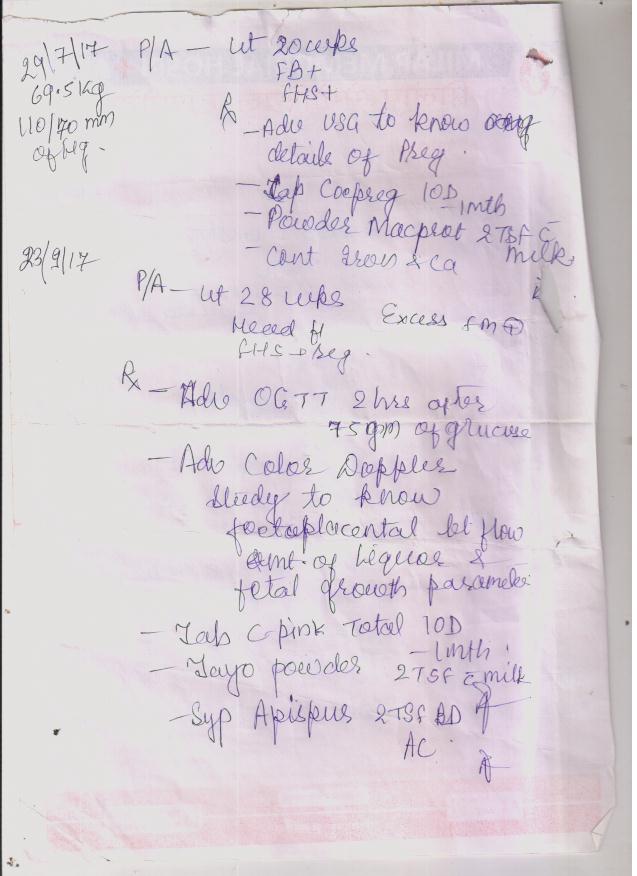 29/7/17 P/A - ut 20 wks
69.5 kg FB+
110/70 mm FHS+
of Hg.
Rx
- Adv USG to know
details of Preg.
- Cap Coepreg 1OD
- 1mth
- Powder Macprot 2TSF c̄
milk
- Cont Iron & Ca
23/9/17
P/A - ut 28 wks
Head Excess FM ⊕
FHS → Reg.
Rx - Adv OGTT 2hrs after
75gm of glucose
- Adv Color Doppler
study to know
foetoplacental bl flow
Amt. of liquor &
fetal growth parameter
- Tab C-pink Total 1OD
- 1mth.
- Jayo powder 2TSF c̄ milk
- Syp Apispus 2TSF BD
AC.